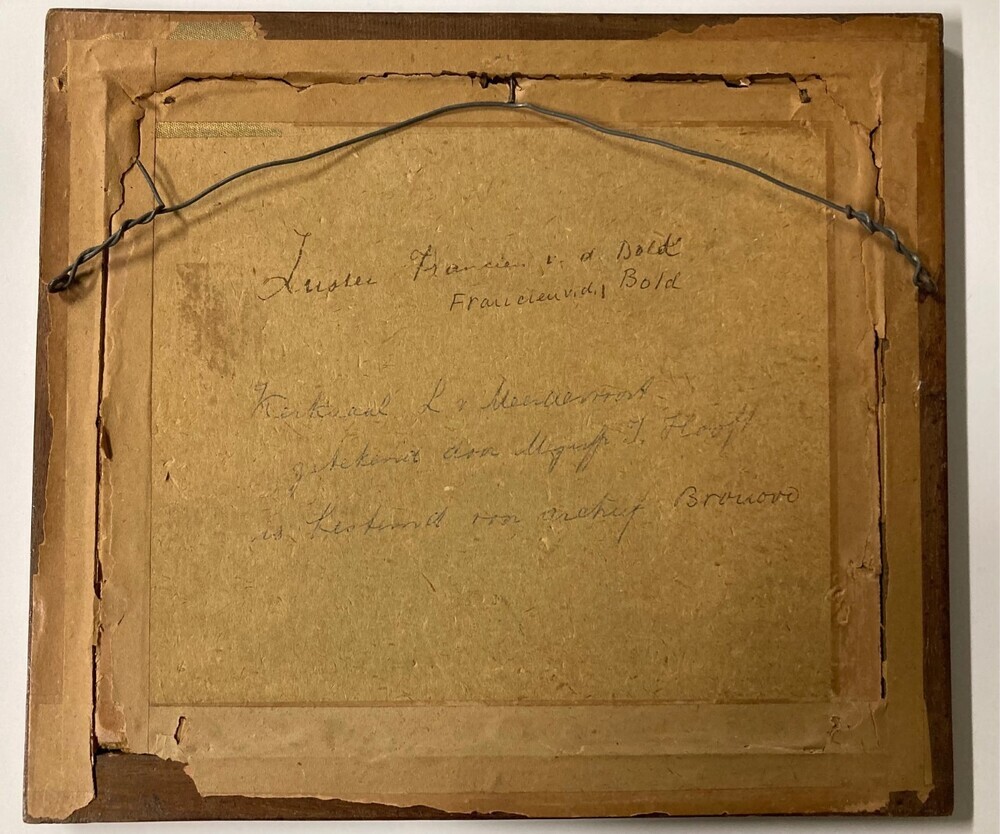 Zuster Francien v. d. Bold
Francien v.d. Bold
Kerkzaal L v Meerdervoort
getekend door Mej T. Hooft
is bestemd voor archief Bronovo